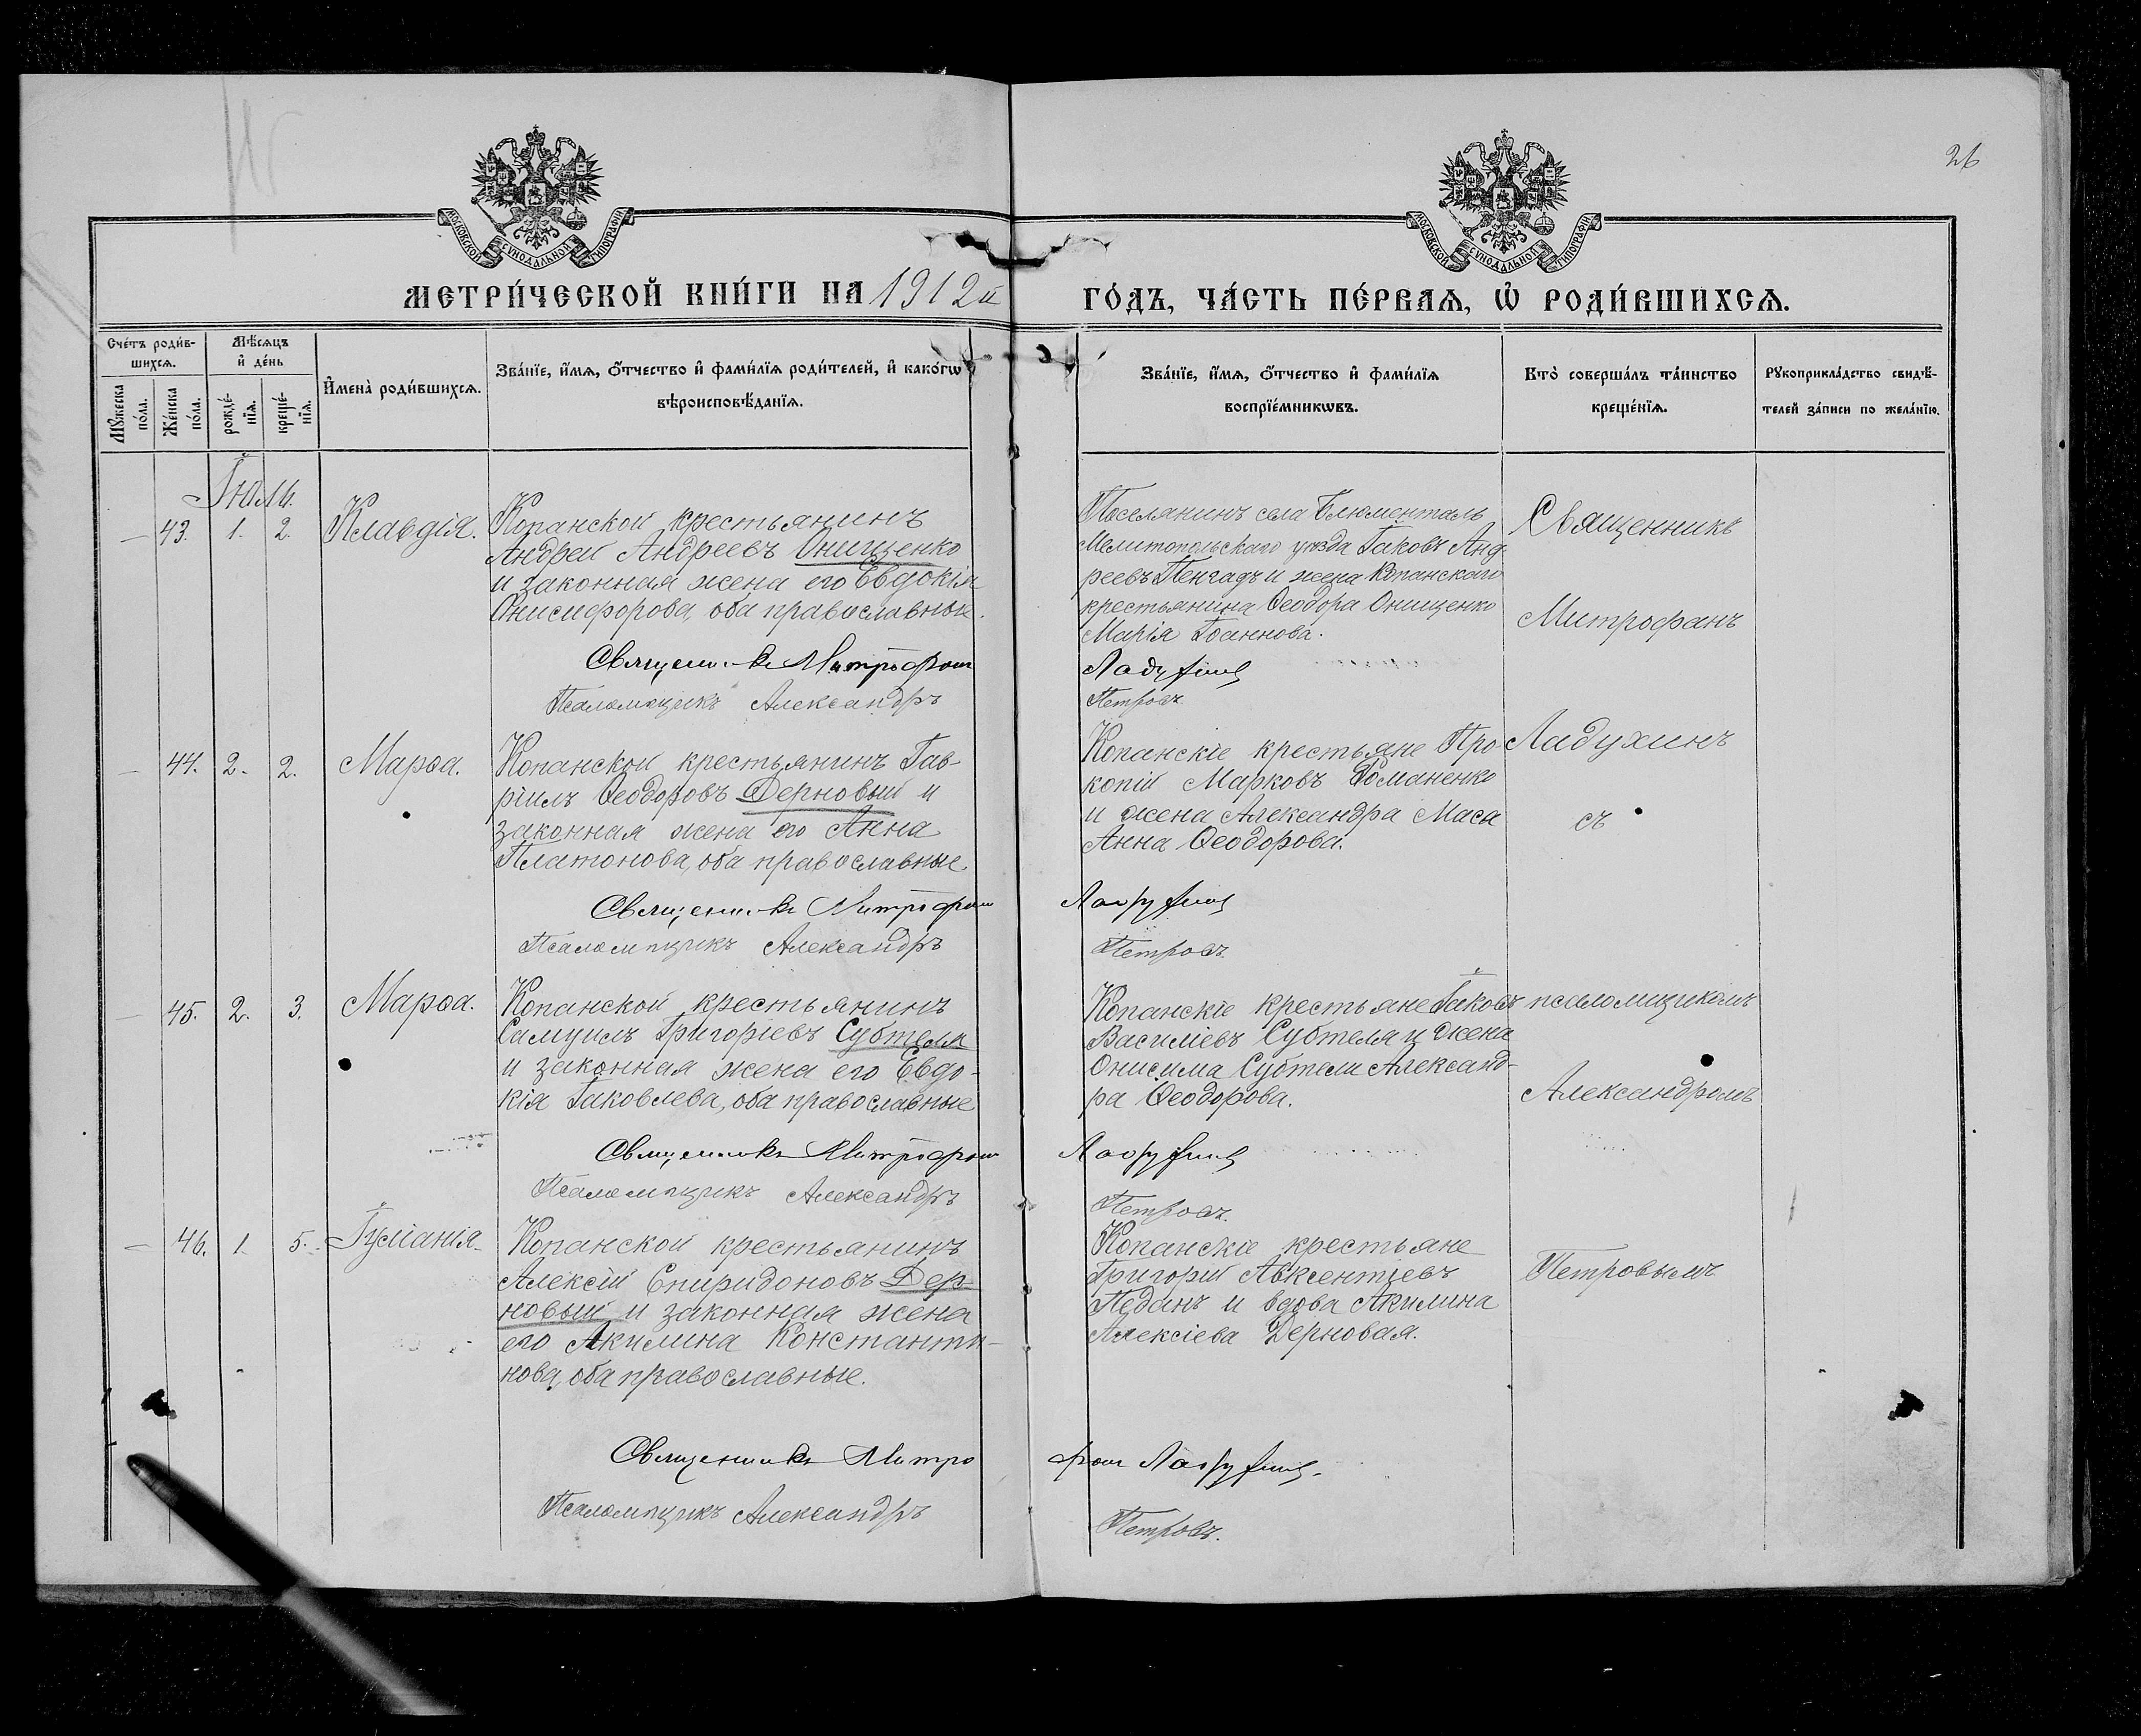 26
МОСКОВСКОЙ СѴНОДАЛЬНОЙ ТИПОГРАФІИ
МОСКОВСКОЙ СѴНОДАЛЬНОЙ ТИПОГРАФІИ
МЕТРИ́ЧЕСКОЙ КНИ́ГИ НА 1912й ГО́ДЪ, ЧА́СТЬ ПЕ́РВАѦ, Ѡ҆ РОДИ́ВШИХСѦ.
Сче́тъ роди́в-
шихсѧ.
Мꙋ́жеска
по́ла.
Же́нска
по́ла.
Мѣ́сѧцъ
и҆ де́нь
рожде́-
нїѧ.
креще́-
нїѧ.
И҆мена̀ роди́вшихсѧ.
Зва́нїе, и҆́мѧ, ѻ҆́тчество и҆ фами́лїѧ роди́телей, и҆ како́гѡ
вѣроисповѣ́данїѧ.
Зва́нїе, и҆́мѧ, ѻ҆́тчество и҆ фами́лїѧ
воспрїе́мникѡвъ.
Кто̀ соверша́лъ та́инство
креще́нїѧ.
Рꙋкоприкла́дство свидѣ́-
телей за́писи по жела́нїю.
Іюль.
43. 1. 2. Клавдія.
Копанской крестьянинъ
Андрей Андреевъ Онищенко
и законная жена его Евдокія
Онисифорова, оба православные.
Священникъ Митрофан
Псаломщикъ Александръ
Поселянинъ села Блюменталь
Мелитопольскаго уѣзда Іаковъ Анд-
реевъ Пенгадъ и жена Копанскаго
крестьянина Ѳеодора Онищенко
Марія Іоаннова.
Ладухинъ
Петровъ
Священникъ
Митрофанъ
44. 2. 2. Марѳа.
Копанской крестьянинъ Гав-
ріилъ Ѳеодоровъ Дерновый и
законная жена его Анна
Платонова, оба православные
Священникъ Митрофан
Псаломщикъ Александръ
Копанскіе крестьяне Про-
копій Марковъ Романенко
и жена Александра Маса
Анна Ѳеодорова.
Ладухинъ
Петровъ.
Ладухинъ
съ
45. 2. 3. Марѳа.
Копанской крестьянинъ
Самуилъ Григорьевъ Субтеля
и законная жена его Евдо-
кія Іаковлева, оба православные
Священникъ Митрофан
Псаломщикъ Александръ
Копанскіе крестьяне Іаковъ
Василіевъ Субтеля и жена
Онисима Субтели Александ-
ра Ѳеодорова.
Ладухинъ
Петровъ.
псаломщикомъ
Александромъ
46. 1. 5. Іуліанія.
Копанской крестьянинъ
Алексій Спиридоновъ Дер-
новый и законная жена
его Акилина Константи-
нова, оба православные.
Священникъ Митро
Псаломщикъ Александръ
Копанскіе крестьяне
Григорій Авксентіевъ
Педанъ и вдова Акилина
Алексіева Дерновая.
фан Ладухинъ.
Петровъ.
Петровымъ